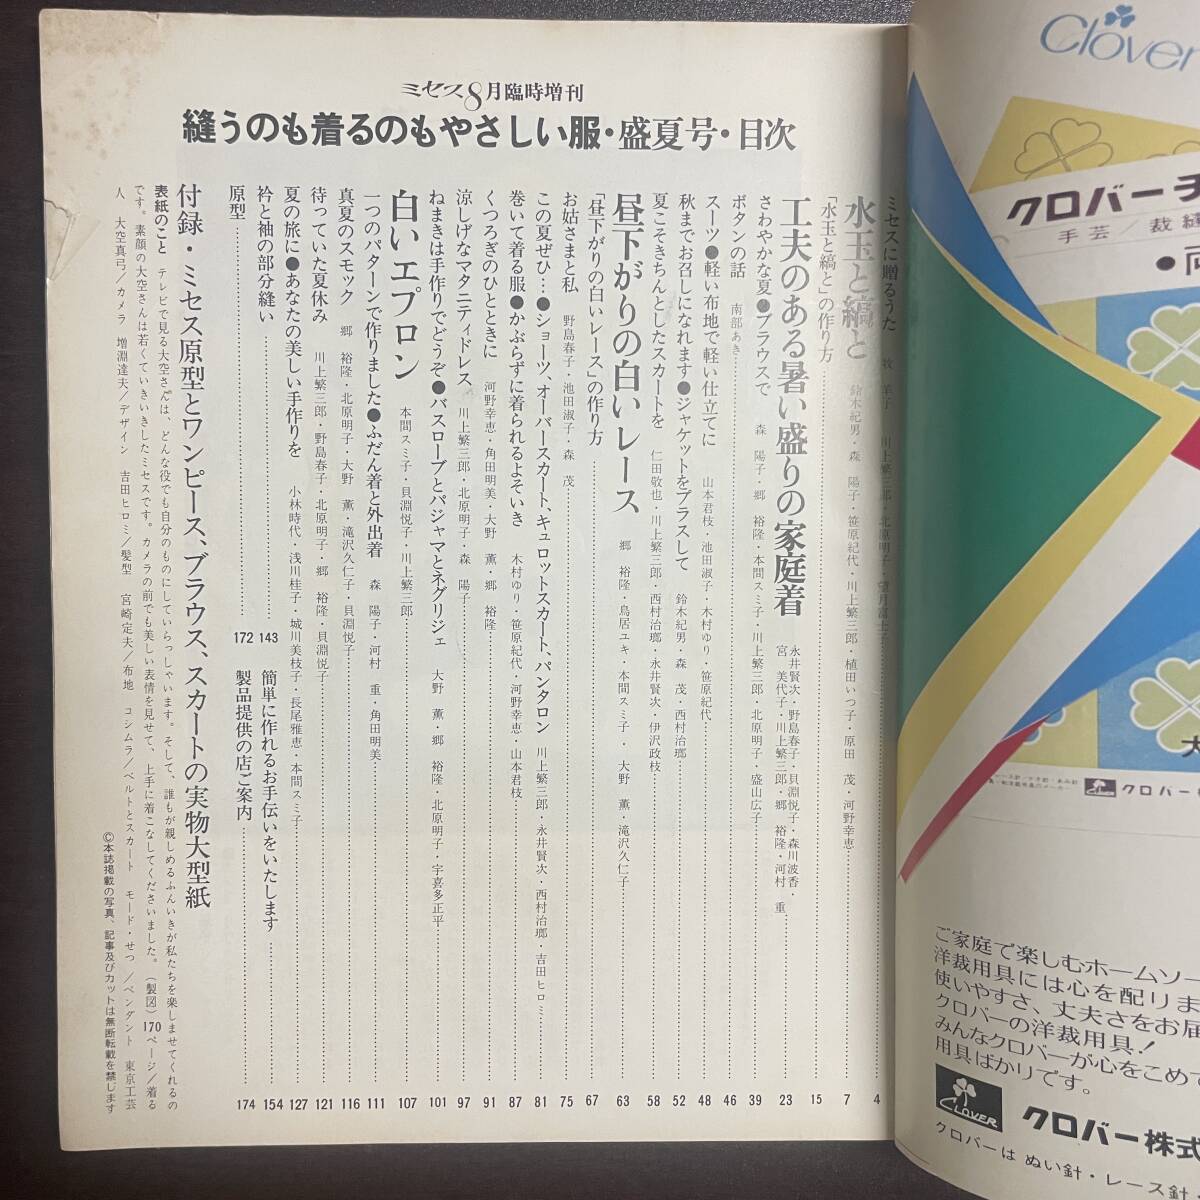 ミセス8月臨時増刊
縫うのも着るのもやさしい服・盛夏号・目次
ミセスに贈るうた 牧 羊子 川上繁三郎・北原明子・望月富士子 4
水玉と縞と 鈴木紀男・森 陽子・笹原紀代・川上繁三郎・植田いつ子・原田 茂・河野幸恵 7
「水玉と縞と」の作り方 15
工夫のある暑い盛りの家庭着 永井賢次・野島春子・貝淵悦子・森川波香・宮 美代子・川上繁三郎・郷 裕隆・河村 重 23
さわやかな夏●ブラウスで 森 陽子・郷 裕隆・本間スミ子・川上繁三郎・北原明子・盛山広子 39
ボタンの話 南部あき 46
スーツ●軽い布地で軽い仕立てに 山本君枝・池田淑子・木村ゆり・笹原紀代 48
秋までお召しになれます●ジャケットをプラスして 鈴木紀男・森 茂・西村治瑯 52
夏こそきちんとしたスカートを 仁田敬也・川上繁三郎・西村治瑯・永井賢次・伊沢政枝 58
昼下がりの白いレース 郷 裕隆・鳥居ユキ・本間スミ子・大野 薫・滝沢久仁子 63
「昼下がりの白いレース」の作り方 67
お姑さまと私 野島春子・池田淑子・森 茂 75
この夏ぜひ…●ショーツ、オーバースカート、キュロットスカート、パンタロン 川上繁三郎・永井賢次・西村治瑯・吉田ヒロミ 81
巻いて着る服●かぶらずに着られるよそいき 木村ゆり・笹原紀代・河野幸恵・山本君枝 87
くつろぎのひとときに 河野幸恵・角田明美・大野 薫・郷 裕隆 91
涼しげなマタニティドレス 川上繁三郎・北原明子・森 陽子 97
ねまきは手作りでどうぞ●バスローブとパジャマとネグリジェ 大野 薫・郷 裕隆・北原明子・宇喜多正平 101
白いエプロン 本間スミ子・貝淵悦子・川上繁三郎 107
一つのパターンで作りました●ふだん着と外出着 森 陽子・河村 重・角田明美 111
真夏のスモック 郷 裕隆・北原明子・大野 薫・滝沢久仁子・貝淵悦子 116
待っていた夏休み 川上繁三郎・野島春子・北原明子・郷 裕隆・貝淵悦子 121
夏の旅に●あなたの美しい手作りを 小林時代・浅川桂子・城川美枝子・長尾雅恵・本間スミ子 127
衿と袖の部分縫い 143
簡単に作れるお手伝いをいたします 154
原型 172
製品提供の店ご案内 174
付録・ミセス原型とワンピース、ブラウス、スカートの実物大型紙
表紙のこと テレビで見る大空さんは、どんな役でも自分のものにしていらっしゃいます。そして、誰もが親しめるふんいきが私たちを楽しませてくれるの
です。素顔の大空さんは若くていきいきしたミセスです。カメラの前でも美しい表情を見せて、上手に着こなしてくださいました。(製図)170ページ/着る
人 大空真弓/カメラ 増淵達夫/デザイン 吉田ヒロミ/髪型 宮崎定夫/布地 コシムラ/ベルトとスカート モード・せつ/ペンダント 東京工芸
©本誌掲載の写真、記事及びカットは無断転載を禁じます
Clover
クロバーチ
手芸/裁縫
●両
大
クロバー
ご家庭で楽しむホームソー
洋裁用具には心を配りま
使いやすさ、丈夫さをお届
クロバーの洋裁用具!
みんなクロバーが心をこめて
用具ばかりです。
CLOVER
クロバー株式
クロバーは ぬい針・レース針・